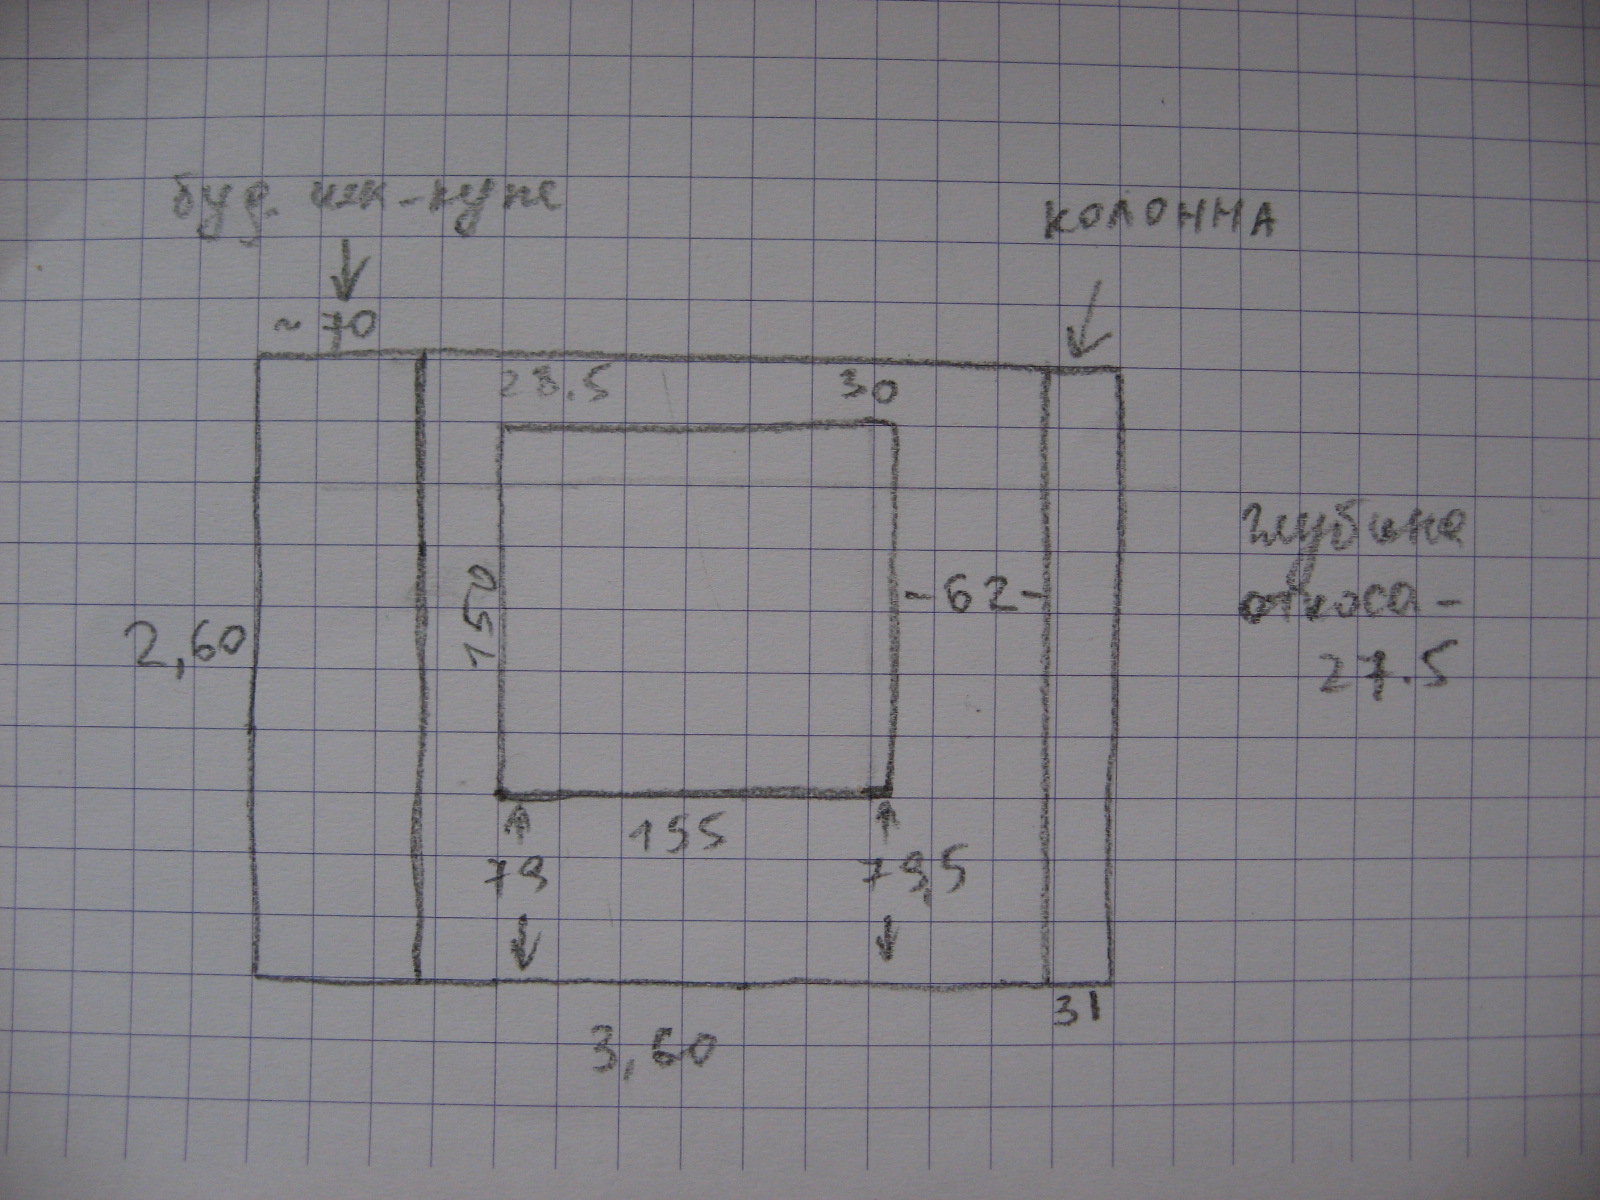 буд. шк-купе
колонна
~ 70
28.5
30
150
- 62 -
2,60
глубина
откоса -
27.5
155
79
79,5
31
3,60